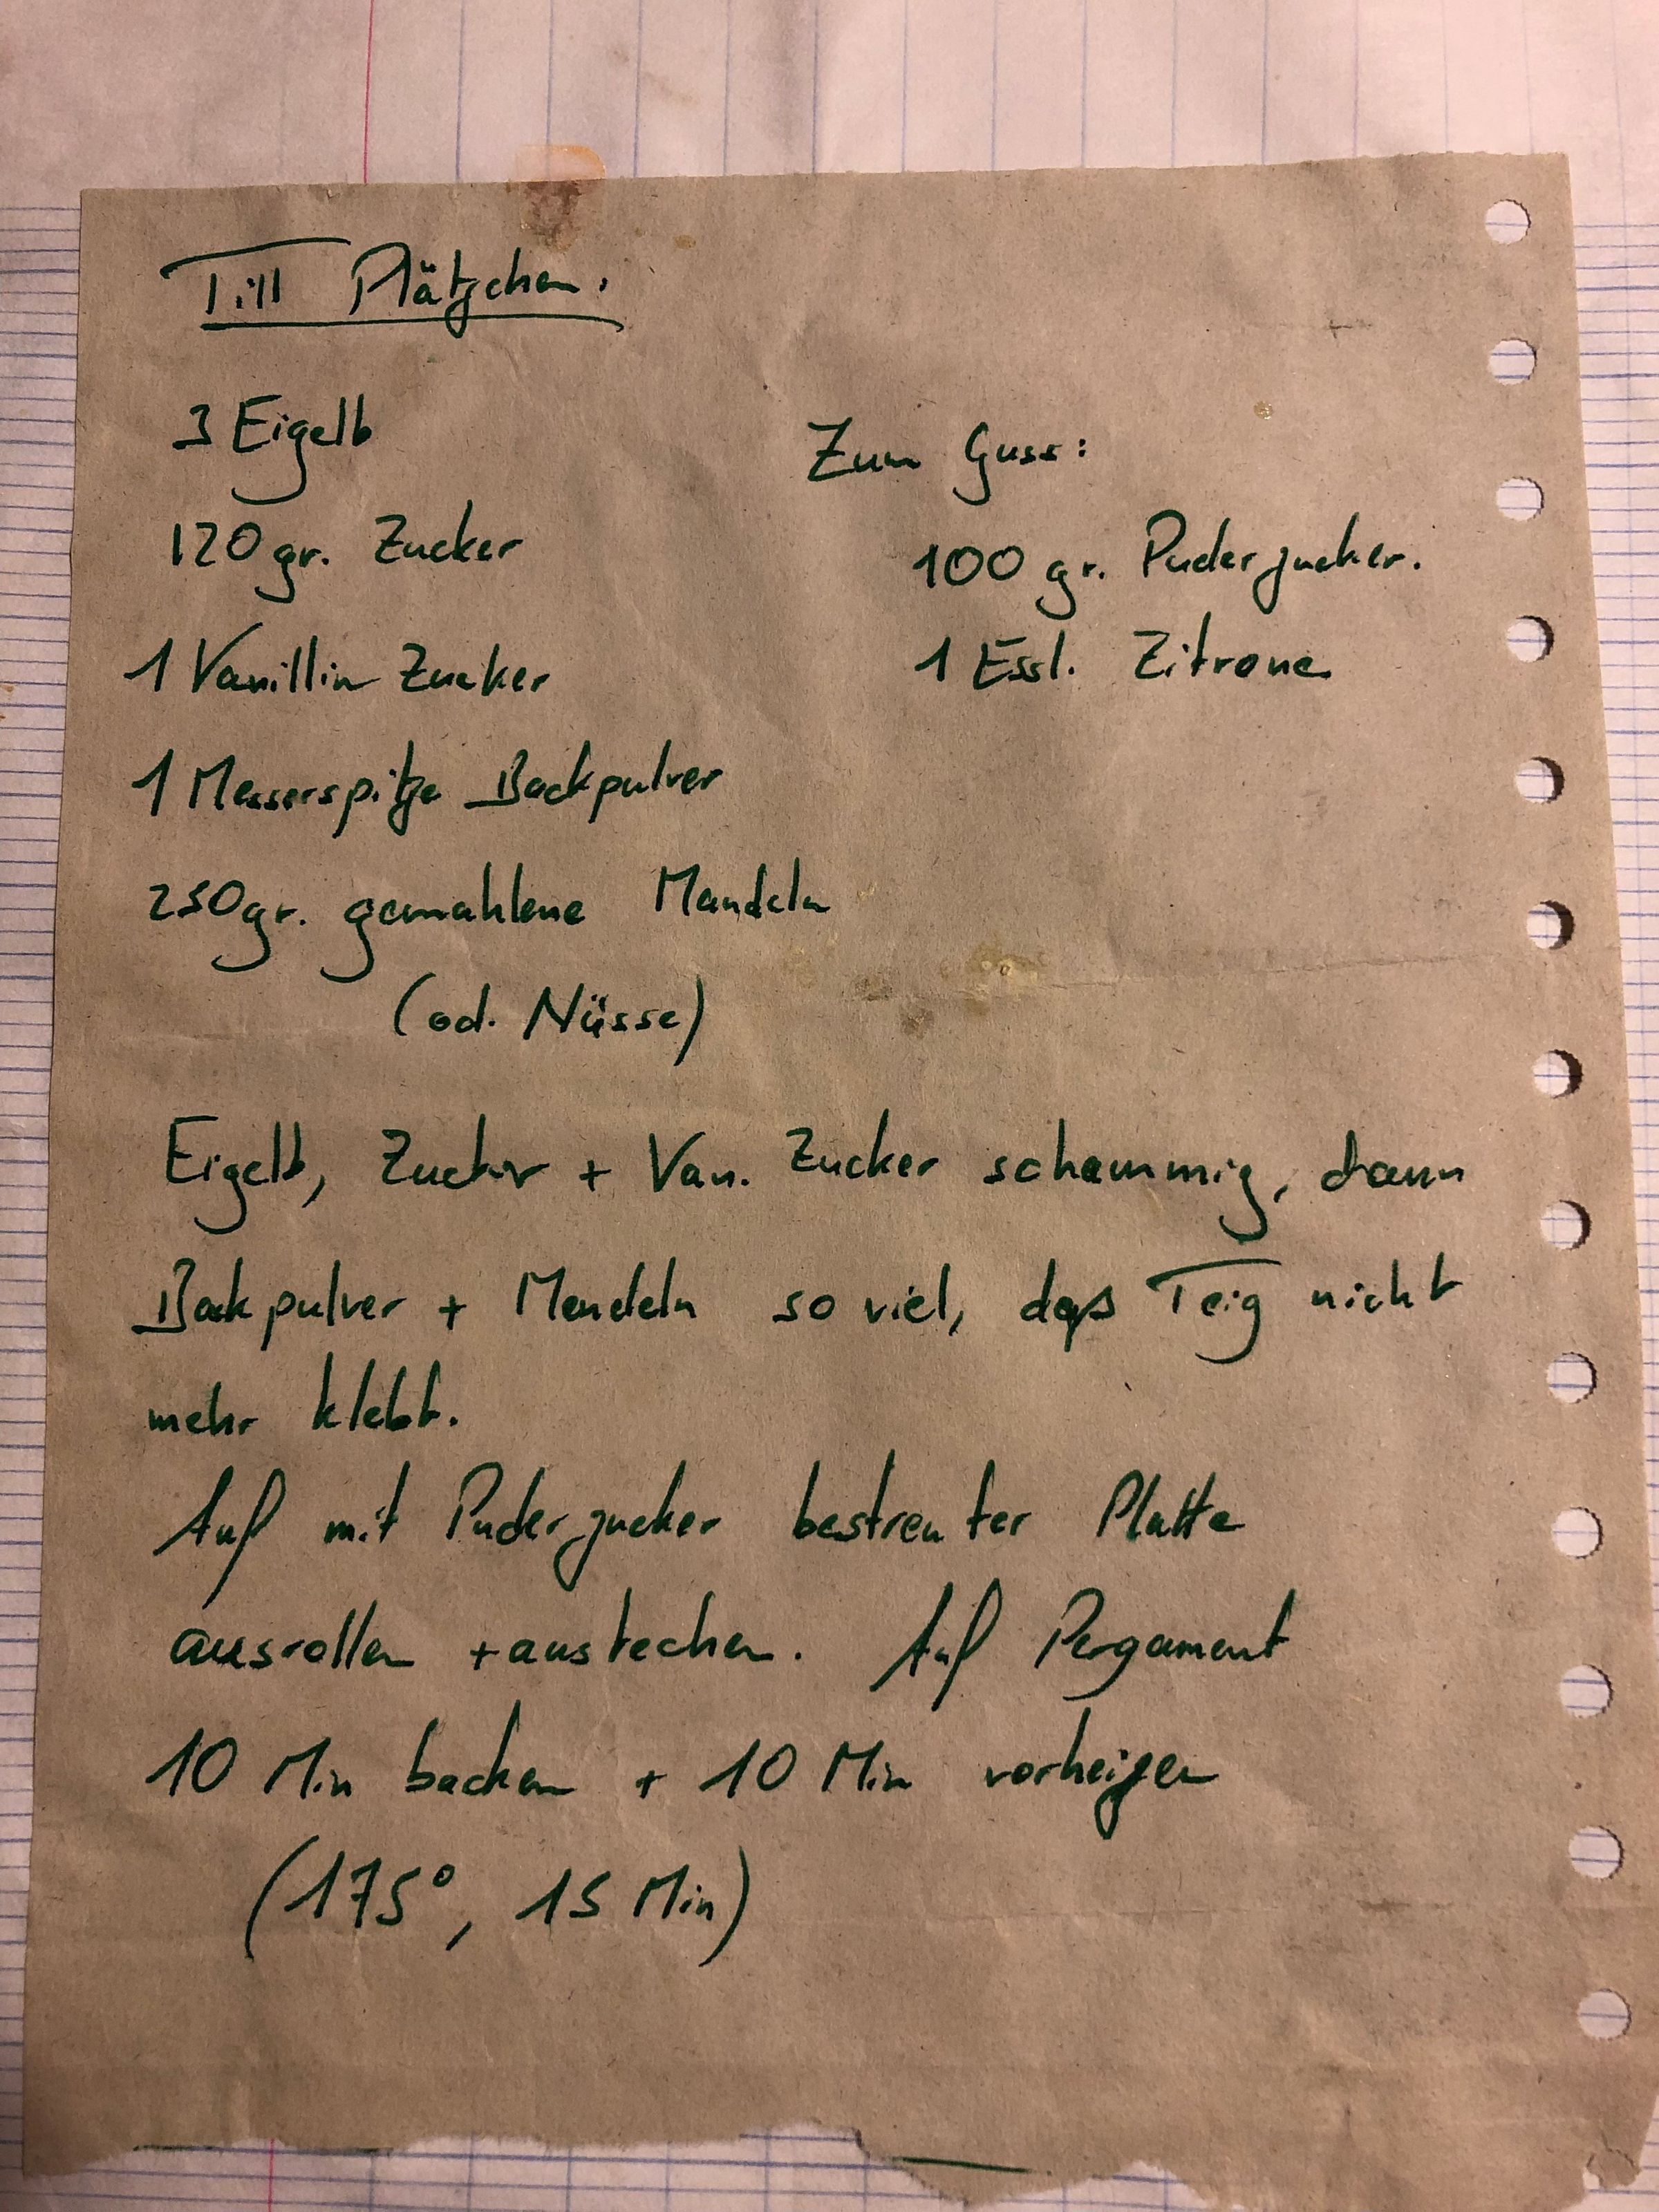 Till Plätzchen.
3 Eigelb
120 gr. Zucker
1 Vanillin Zucker
1 Messerspitze Backpulver
250 gr. gemahlene Mandeln
(od. Nüsse)
Zum Guss:
100 gr. Puderzucker.
1 Essl. Zitrone
Eigelb, Zucker + Van. Zucker schaummig, dann
Backpulver + Mandeln so viel, daß Teig nicht
mehr klebt.
Auf mit Puderzucker bestreuter Platte
ausrollen + austechen. Auf Pergament
10 Min backen + 10 Min vorheizen
(175°, 15 Min)